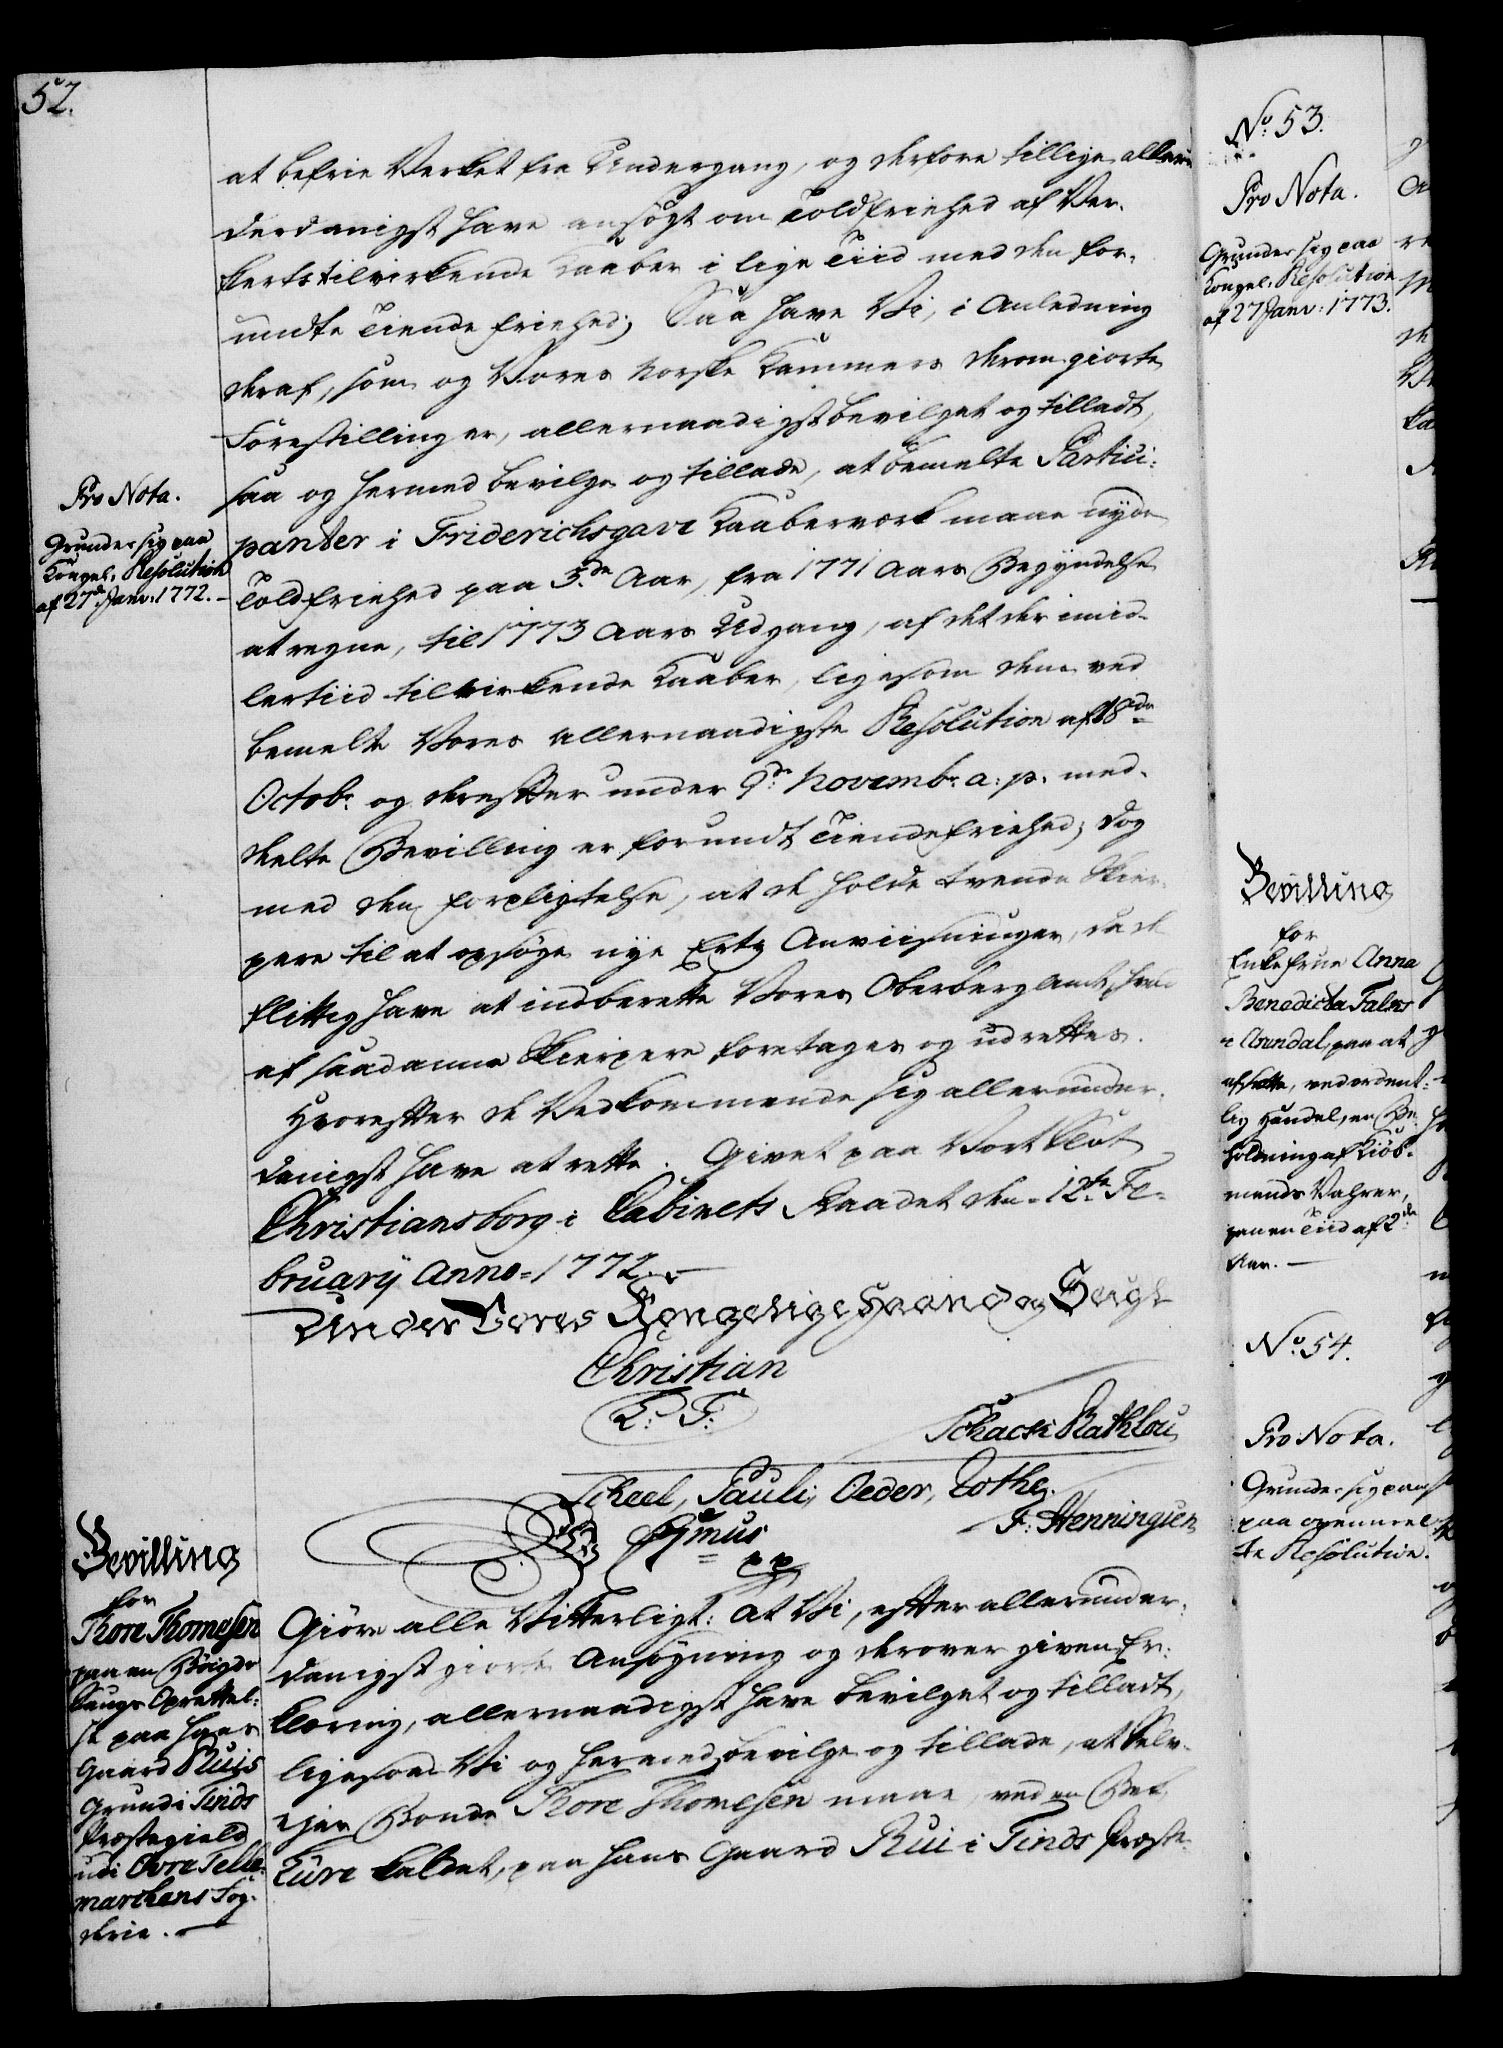 52.
at befrie Verket fra Undergang, og derfore tillige allerun
derdanigst have ansögt om Toldfriehed af Ver-
kets tilvirkende Kaaber i lige Tiid med den for-
undte Tiende friehed; Saa have Vi, i Anledning
deraf, som og Vores Norske Kammers derom giorte
Forestillinger, allernaadigst bevilget og tilladt,
saa og hermed bevilge og tillade, at bemelte Partici-
panter i Friderichsgave Kaaberverk maae nyde
Toldfriehed paa 3de Aar, fra 1771 Aars Begyndelse
at regne, til 1773 Aars Udgang, af det der imid-
lertiid tilvirkende Kaaber, ligesom dem ved
bemelte Vores Allernaadigste Resolution af 18de
Octobr og derefter under 9de Novembr: a: p: med-
deelte Bevilling er forundt Tiendefriehed; dog
med den Forpligtelse, at de holde tvende Skier-
pere til at opsöge nye Ertz Anviisninger, da de
flittig have at indberette Vores Oberbergamt hvad
af saadanne Skierpere foretages og udrettes.
Hvorefter de Vedkommende sig allerunder-
danigst have at rette. Givet paa Vort Slot
Christiansborg i Cabinets Raadet den 12te Fe-
bruarÿ Anno 1772.
Under Vores Kongelige Haand og Seigl
Christian
L: F:
Schack Rathlou
Scheel, Pauli, Oeder, Zothe.
F: Henningsen
Pro Nota.
Grunder sig paa
Kongel. Resolution
af 27de Janv: 1772.
Bevilling
for
Thore Thomesen
paa en Böigde
Laugs Oprettel-
se paa hans
Gaard Ruis
Grund i Tinds
Præstegield
udi Övre Telle-
marchens Fog-
derie.
Giöre alle Vitterligt: At Vi, efter allerunder-
danigst giorte Ansögning og derover given Er-
klæring, allernaadigst have bevilget og tilladt,
ligesom Vi og hermed bevilge og tillade, at Selv-
ejer Bonde Thore Thomesen maae, ved en Bek,
Lure kaldet, paa hans Gaard Rui i Tinds Præste-
No: 53.
Pro Nota.
Grunder sig paa
Kongel. Resolution
af 27 Janv: 1773.
Bevilling
for
Enkefrue Anna
Benedicta Falms
i Arendal, paa at
afsætte, ved ordent-
lig Handel, en Be-
holdning af Kiöb-
mands Vahrer,
paa en Tiid af 2de
Aar.
No: 54.
Pro Nota.
Grunder sig paa
paa ovenmel-
te Resolution.